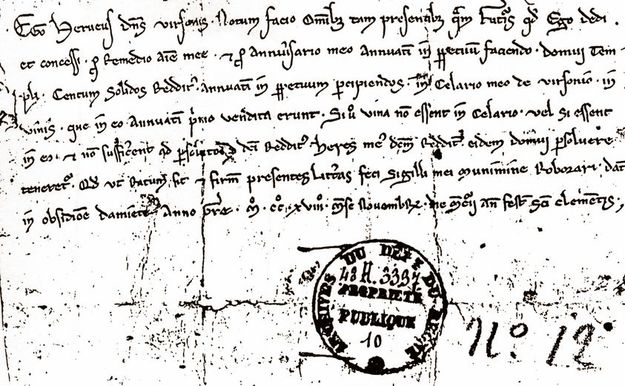 Ego Herveus dns virsonis. Notum facio Omibz tam presentibz qm futis qd Ego dedi
et concessi . p Remedio aie mee . et p Anniversario meo Annuati in ppetuum faciendo . domui Tem
pli . Centum Solidos Reddit . annuati in ppetuum pcipiendos . in Celario meo de virsone . in
vinis . que in eo Annuati pmo vendita erunt . Si v vina non essent in Celario . vel si essent
in eo . et non sufficerent ad pscriptos Reddit heres me dcm Reddit eidem domui psolvere
teneret . Qd ut Ratum sit et firm presentes Litas feci sigilli mei munimine Roborari . Dat
in obsidione damiete Anno gre . M . CC . xviii . mse Novembr . die mcii an fest sci clementis
ARCHIVES DU DÉPT DU
48 H. 3397
PROPRIETE
PUBLIQUE
10
No. 12